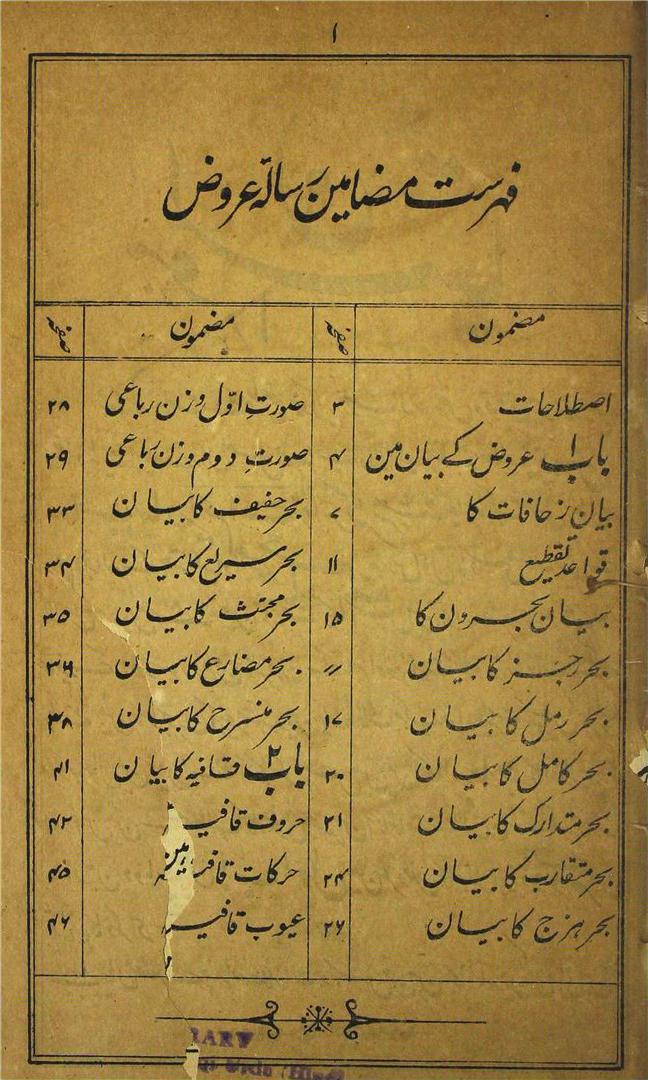 ۱
فہرست مضامین رسالۂ عروض
مضمون صفحہ
اصطلاحات ۳
باب ۱ عروض کے بیان مین ۴
بیان زحافات کا ۷
قواعد تقطیع ۱۱
بیان بحرون کا ۱۵
بحر رجز کا بیان //
بحر رمل کا بیان ۱۷
بحر کامل کا بیان ۲۰
بحر متدارک کا بیان ۲۱
بحر متقارب کا بیان ۲۴
بحر ہزج کا بیان ۲۶
مضمون صفحہ
صورتِ اوّل وزن رباعی ۲۸
صورتِ دوم وزن رباعی ۲۹
بحر خفیف کا بیان ۳۳
بحر سریع کا بیان ۳۴
بحر مجتث کا بیان ۳۵
بحر مضارع کا بیان ۳۶
بحر منسرح کا بیان ۳۸
باب ۲ قافیہ کا بیان ۴۱
حروف قافیہ ۴۲
حرکات قافیہ ۴۵
عیوب قافیہ ۴۶